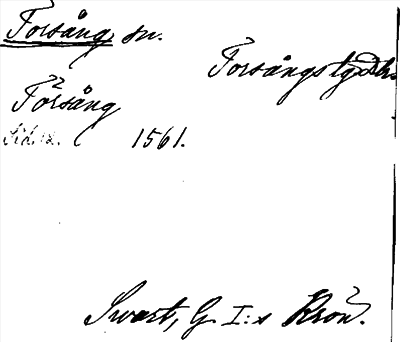 Forsång, sn.
Forsångs tg. Dlr.
Försång
Sid. 12. 1561.
Swart, G. I:s Krön.